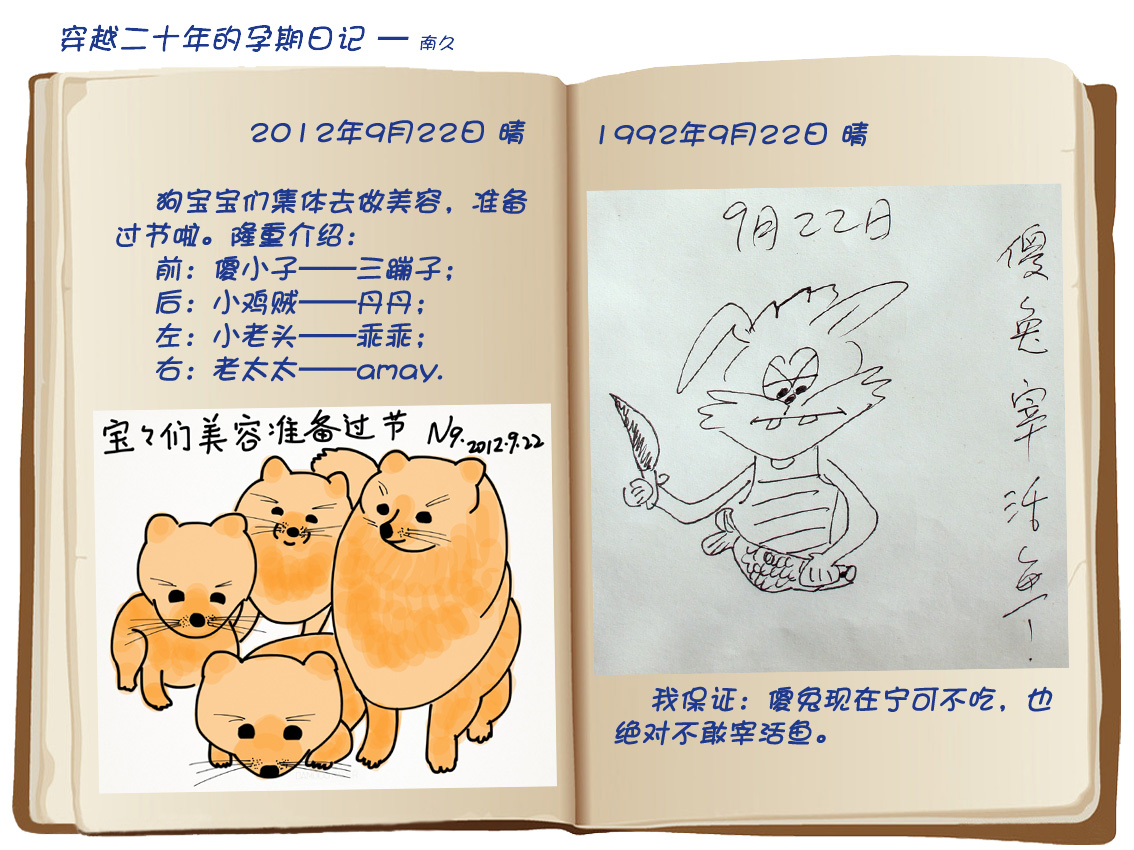 穿越二十年的孕期日记 — 南久
2012年9月22日 晴
狗宝宝们集体去做美容，准备
过节啦。隆重介绍：
前：傻小子——三蹦子；
后：小鸡贼——丹丹；
左：小老头——乖乖；
右：老太太——amay.
宝々们美容准备过节 N9.2012.9.22
1992年9月22日 晴
9月22日
傻兔宰活鱼！
我保证：傻兔现在宁可不吃，也
绝对不敢宰活鱼。